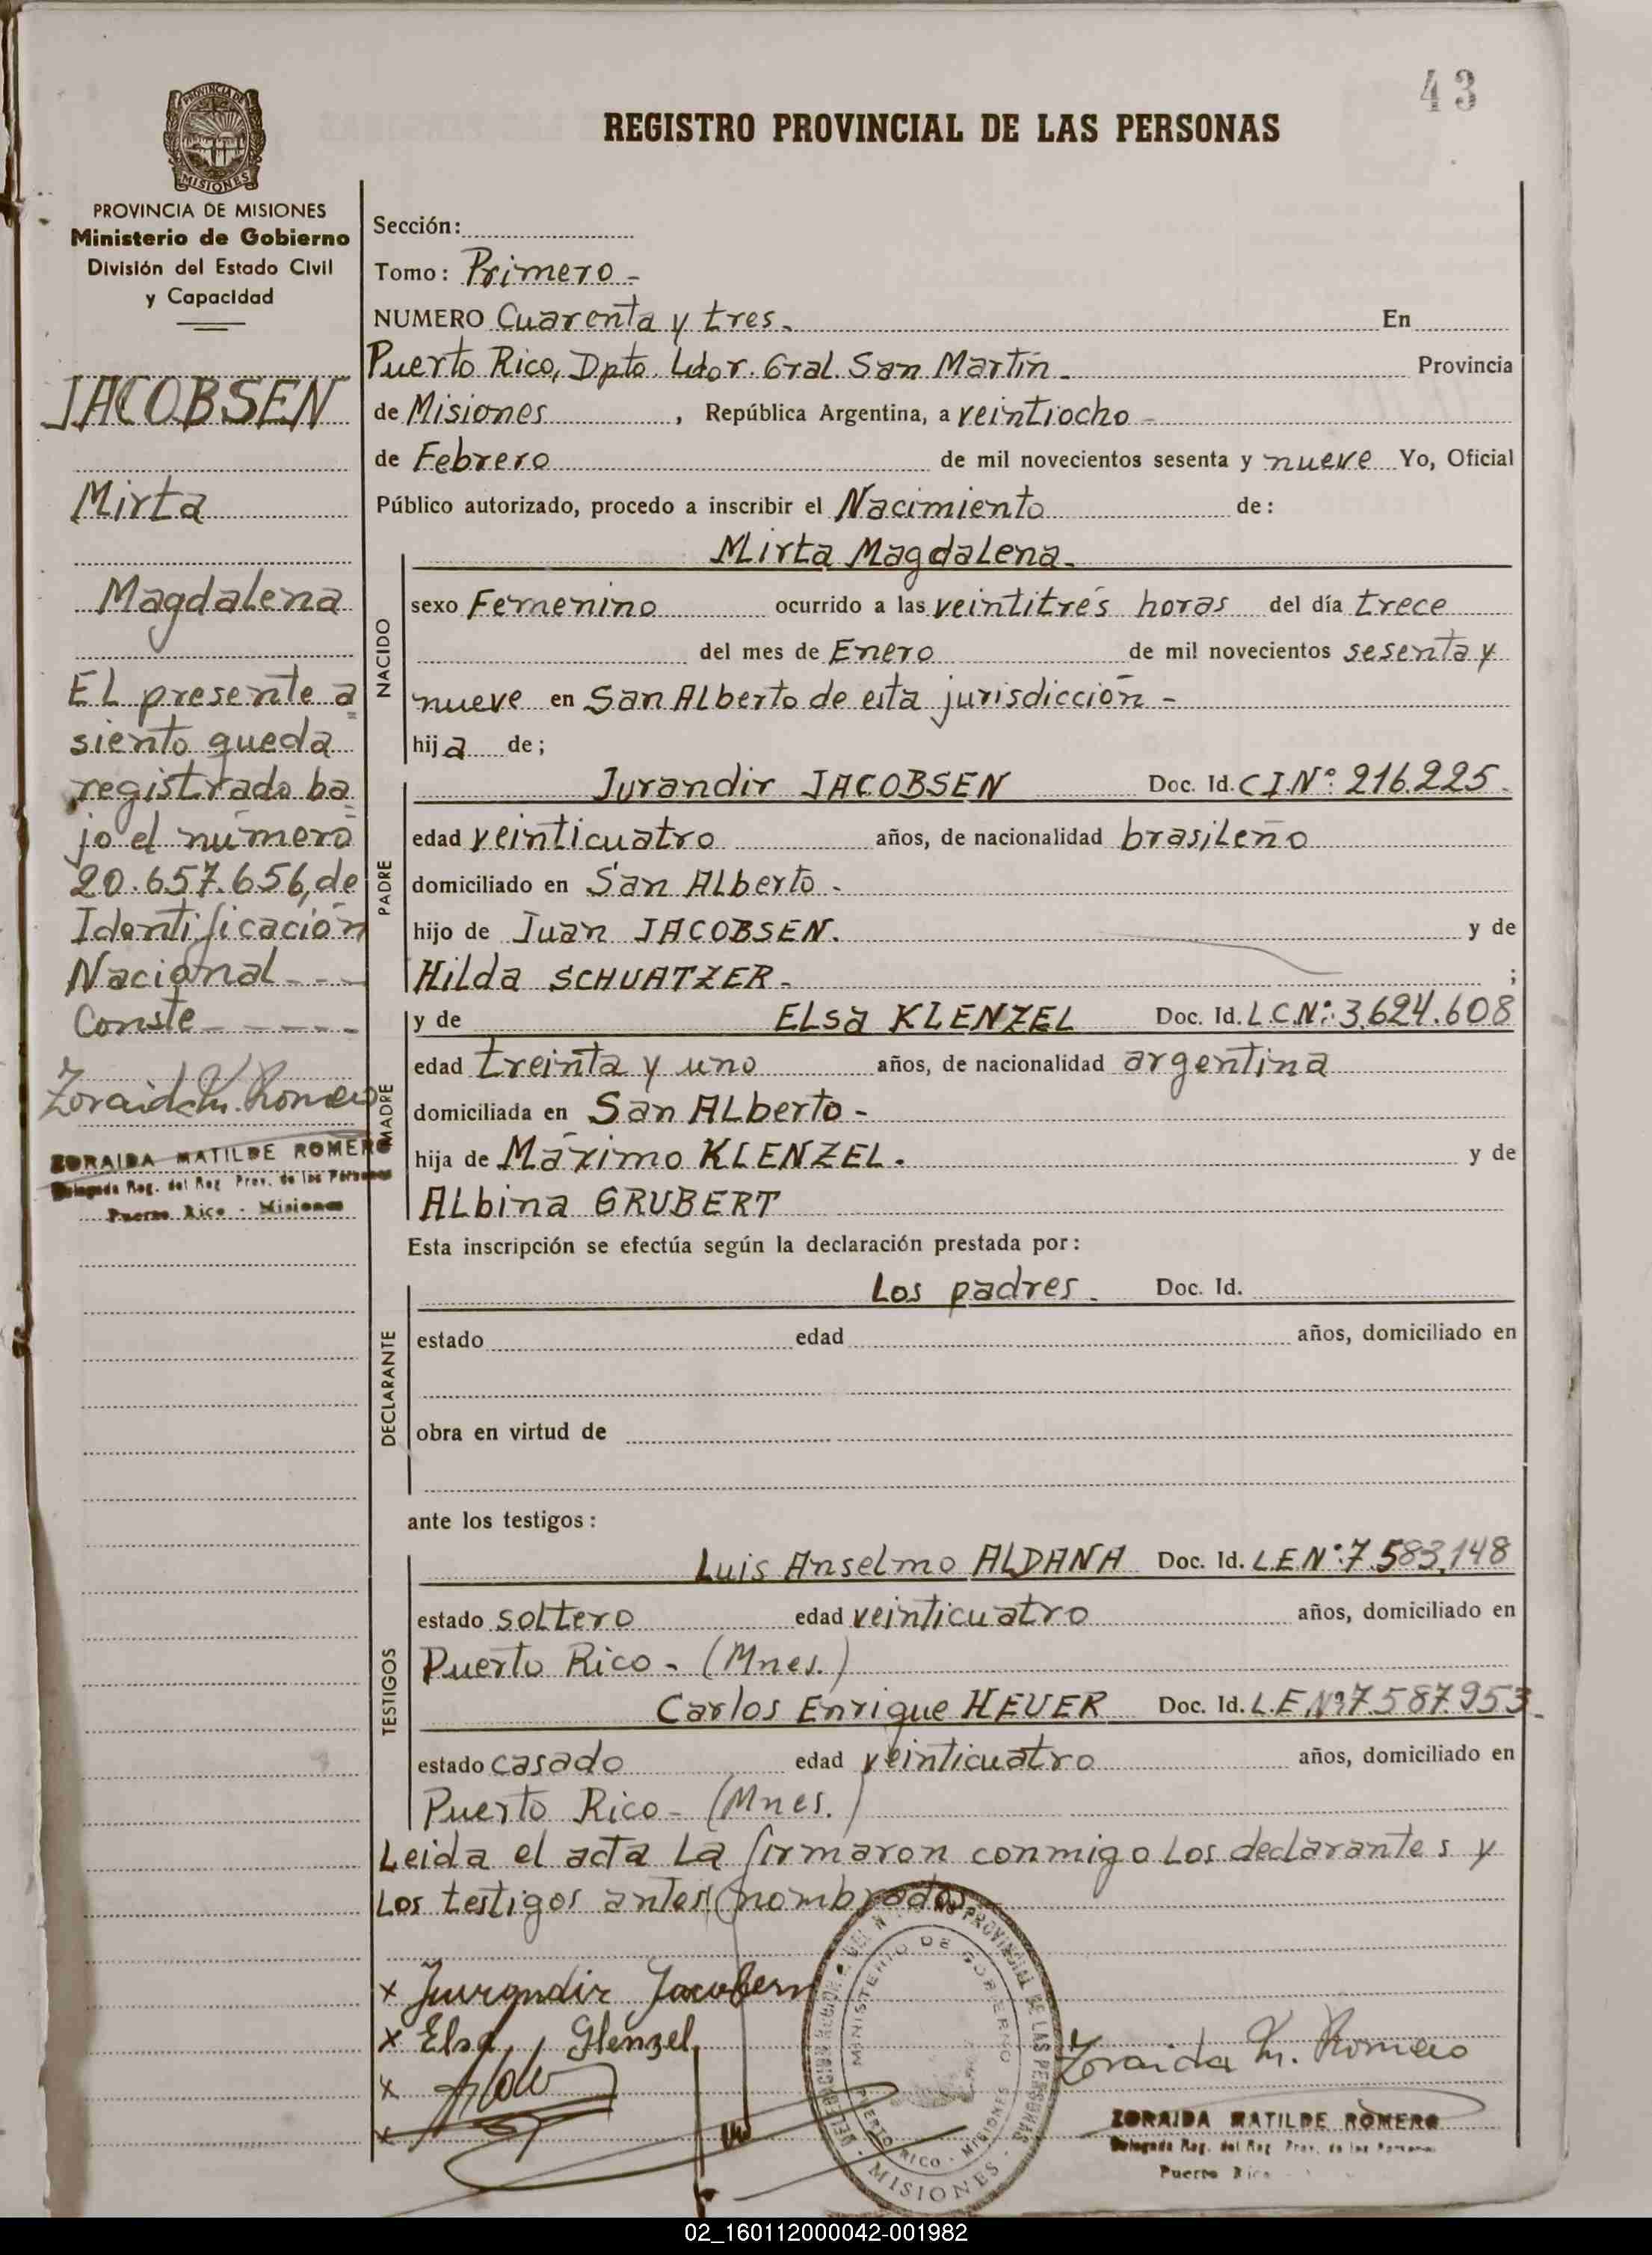 43
REGISTRO PROVINCIAL DE LAS PERSONAS
PROVINCIA DE
MISIONES
PROVINCIA DE MISIONES
Ministerio de Gobierno
División del Estado Civil
y Capacidad
JACOBSEN
Mirta
Magdalena
EL presente a=
siento queda
registrado ba
jo el número
20.657.656, de
Identificación
Nacional - - -
Conste - - - - -
Zoraida M. Romero
ZORAIDA MATILDE ROMERO
Delegada Reg. del Reg Prov. de las Personas
Puerto Rico - Misiones
Sección:
Tomo: Primero -
NUMERO Cuarenta y tres. En
Puerto Rico, Dpto. Ldor. Gral. San Martín - Provincia
de Misiones , República Argentina, a veintiocho -
de Febrero de mil novecientos sesenta y nueve Yo, Oficial
Público autorizado, procedo a inscribir el Nacimiento de:
NACIDO
Mirta Magdalena.
sexo Femenino ocurrido a las veintitrés horas del día trece
del mes de Enero de mil novecientos sesenta y
nueve en San Alberto de esta jurisdicción -
hija de;
PADRE
Jurandir JACOBSEN Doc. Id. C.I.Nº: 216.225.
edad veinticuatro años, de nacionalidad brasileño
domiciliado en San Alberto -
hijo de Juan JACOBSEN. y de
Hilda SCHUATZER - ;
MADRE
y de ELsa KLENZEL Doc. Id. L.C.Nº: 3.624.608
edad treinta y uno años, de nacionalidad argentina
domiciliada en San ALberto -
hija de Máximo KLENZEL. y de
ALbina GRUBERT
Esta inscripción se efectúa según la declaración prestada por:
DECLARANTE
Los padres. Doc. Id.
estado edad años, domiciliado en
obra en virtud de
ante los testigos:
TESTIGOS
Luis Anselmo ALDANA Doc. Id. L.E.Nº: 7.583.148
estado soltero edad veinticuatro años, domiciliado en
Puerto Rico - (Mnes.)
Carlos Enrique HEUER Doc. Id. L.E Nº 7.587.953-
estado casado edad veinticuatro años, domiciliado en
Puerto Rico - (Mnes.)
Leida el acta la firmaron conmigo los declarantes y
los testigos antes nombrados
x Jurandir Jacobsen
x Elsa Glenzel
x
x
PROVINCIAL DE LAS PERSONAS
MINISTERIO DE GOBIERNO
PUERTO RICO - MISIONES
MISIONES
Zoraida M. Romero
ZORAIDA MATILDE ROMERO
Delegada Reg. del Reg Prov. de las Personas
Puerto Rico
02_160112000042-001982